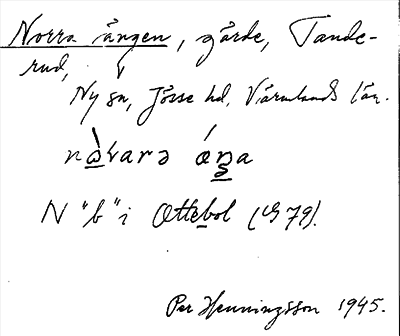 Norra ängen, gärde, Tande-
rud,
Ny sn, Jösse hd, Värmlands län.
nòrarə æŋa
N "b" i Ottebol (LG 79).
Per Henningsson 1945.